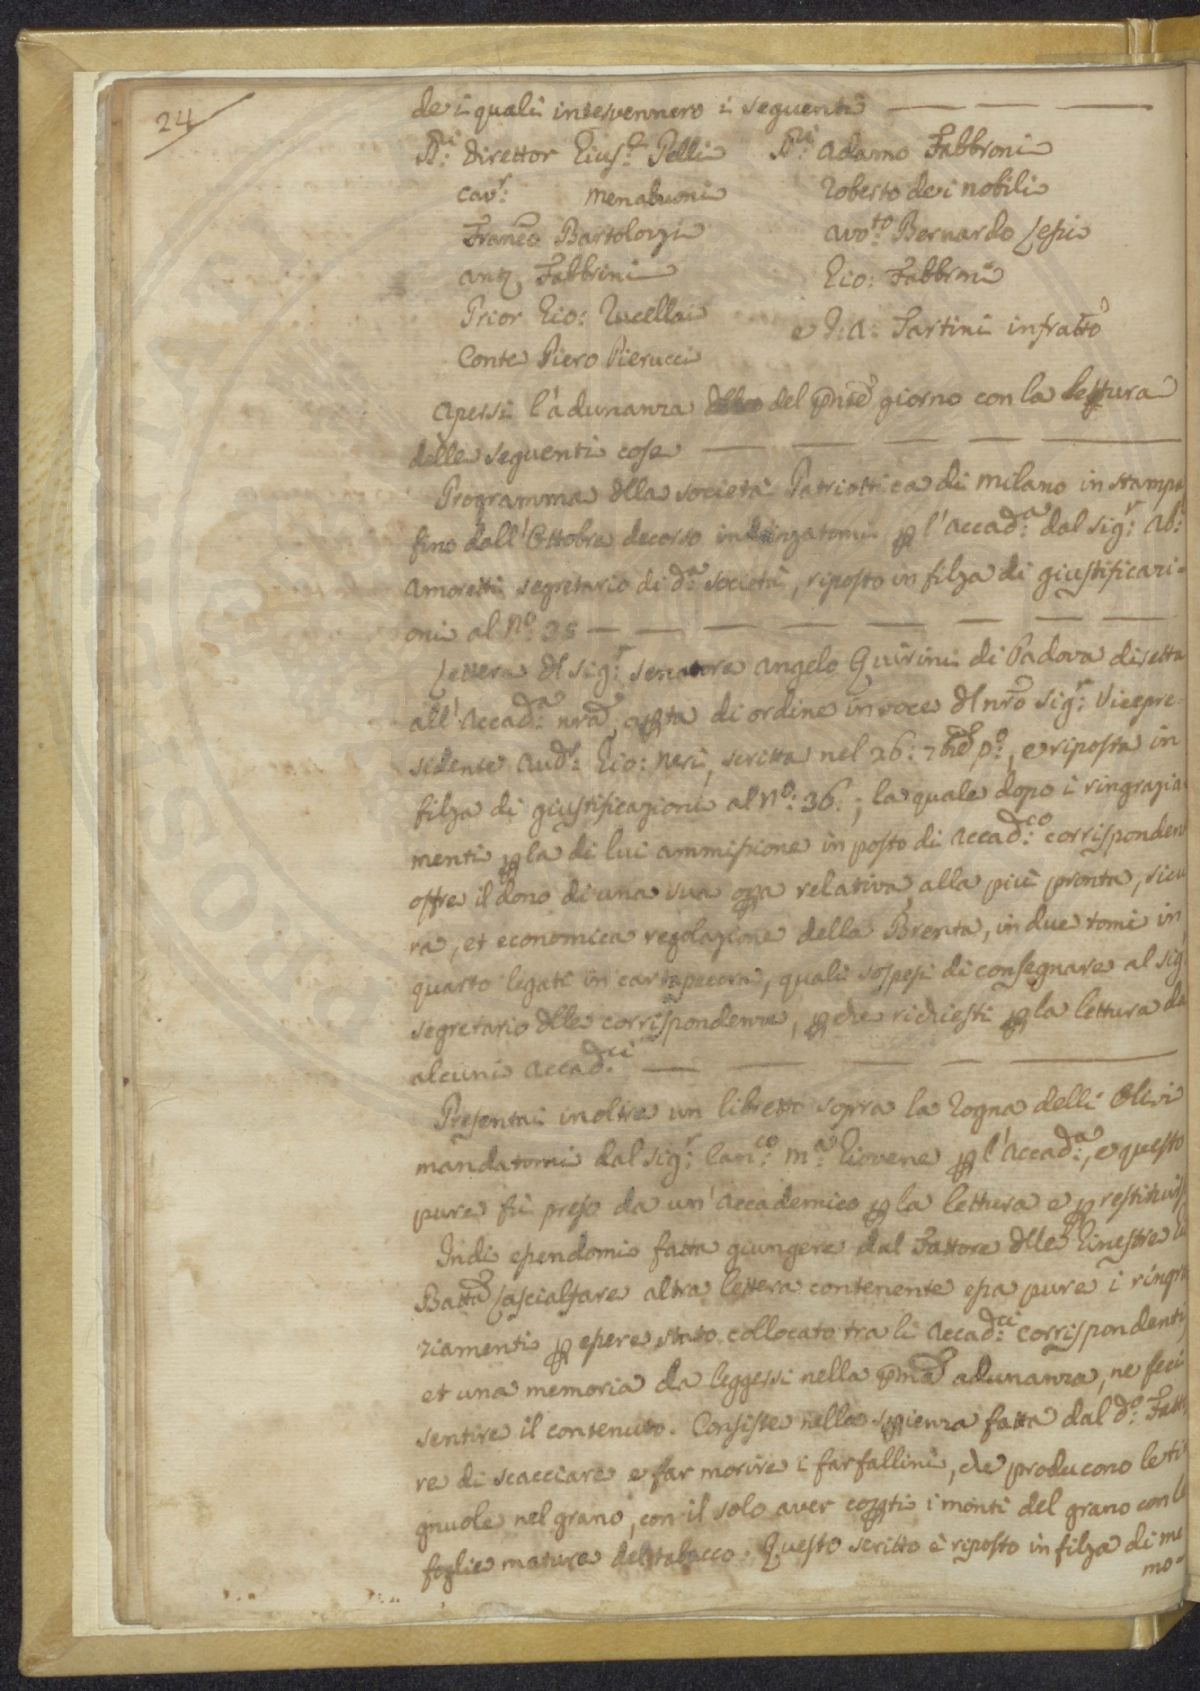 24
dei quali intervennero i seguenti
SS.ri: Direttor Gius.e Pelli
Cav.r: Menabuoni
Franc.o Bartolozzi
Ant.o Fabbrini
Prior Gio: Rucellai
Conte Piero Pierucci
SS.ri: Adamo Fabbroni
Roberto dei Nobili
Avv.to: Bernardo Lessi
Gio: Fabbroni
e G: A: Tartini infratto
Apersi l'adunanza del pnte giorno con la lettura
delle seguenti cose
Programma dlla Società Patriottica di Milano in stampa
fino dall'Ottobre decorso indrizzatomi p l'Accad.a: dal Sig.r: Ab.e
Amoretti segretario di d.a: Società, riposto in filza di giustificazi=
oni al N.o: 35
Lettera dl Sig.r: Senatore Angelo Quirini di Padova diretta
all'Accad.a: nra, apta di ordine in voce dl nro Sig.r: Vicepre=
sidente Aud.r: Gio: Neri, scritta nel 26: 7bre p.o:, e riposta in
filza di giustificazioni al N.o: 36: ; la quale dopo i ringrazia
menti p la di lui ammissione in posto di Accad.co: corrisponden
offre il dono di una sua opa relativa alla più pronta, sicu
ra, et economica regolazione della Brenta, in due tomi in
quarto legati in cartapecora, quali sospesi di consegnare al Sig
segretario dlle corrispondenze, pche richiesti p la lettura da
alcuni Accad.ci
Presentai inoltre un libretto sopra la Rogna delli Olivi
mandatomi dal Sig.r: Can.co: M.a: Giovene p l'Accad.a:, e questo
pure fù preso da un'Accademico p la lettura e p restituirs
Indi essendomi fatta giungere dal Fattore dlle Ginestre
Batta Cascialfare altra lettera contenente essa pure i ringra
ziamenti p essere stato collocato tra li Accad.ci: corrispondenti,
et una memoria da leggersi nella pma adunanza, ne feci
sentire il contenuto. Consiste nella spienza fatta dal d.o: Fatto
re di scacciare e far morire i farfallini, che producono le ti
gnuole nel grano, con il solo aver copti i monti del grano con le
foglie mature del tabacco. Questo scritto è riposto in filza di me
mo=